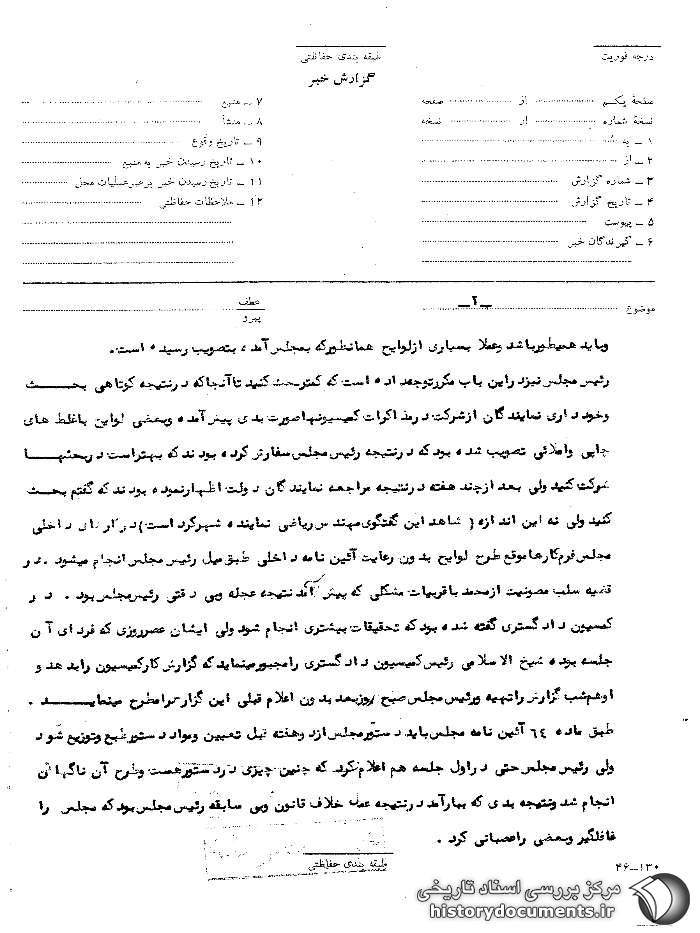 درجه فوریت
طبقه بندی حفاظتی
گزارش خبر
صفحهٔ یکم ............ از ............ صفحه
نسخهٔ شماره ............ از ............ نسخه
۱ ــ به
۲ ــ از
۳ ــ شماره گزارش
۴ ــ تاریخ گزارش
۵ ــ پیوست
۶ ــ گیرندگان خبر
۷ ــ منبع
۸ ــ منشأ
۹ ــ تاریخ وقوع
۱۰ ــ تاریخ رسیدن خبر به منبع
۱۱ ــ تاریخ رسیدن خبر برهبر عملیات محل
۱۲ ــ ملاحظات حفاظتی
موضوع
ــ۲ــ
عطف
پیرو
وباید همینطورباشد وعملا بسیاری ازلوایح همانطورکه بمجلس آمده بتصویب رسیده است.
رئیس مجلس نیزدراین باب مکررتوجه داده است که کمتربحث کنید تاآنجاکه درنتیجه کوتاهی بحث
وخود داری نمایندگان ازشرکت درمذاکرات کمیسیونهاصورت بدی پیش آمده وبعضی لوایح باغلط های
چاپی واملائی تصویب شده بود که درنتیجه رئیس مجلس سفارش کرده بودند که بهتراست دربحثها
شرکت کنید ولی بعد ازچند هفته درنتیجه مراجعه نمایندگان دولت اظهارنموده بودند که گفتم بحث
کنید ولی نه این اندازه( شاهد این گفتگوی مهندس ریاضی نماینده شهرکرد است)درکارهای داخلی
مجلس فرم کارهاموقع طرح لوایح بدون رعایت آئین نامه داخلی طبق میل رئیس مجلس انجام میشود . در
قضیه سلب مصونیت ازمحمد باقربیات مشکلی که پیش آمد نتیجه عجله وبی دقتی رئیس مجلس بود . در
کمیسیون دادگستری گفته شده بود که تحقیقات بیشتری انجام شود ولی ایشان عصرروزی که فردای آن
جلسه بوده شیخ الاسلامی رئیس کمیسیون دادگستری رامجبورمینماید که گزارش کارکمیسیون رابدهد و
اوهم شب گزارش راتهیه ورئیس مجلس صبح روزبعد بدون اعلام قبلی این گزارش رامطرح مینماید .
طبق ماده ۶۴ آئین نامه مجلس باید دستورمجلس ازدوهفته قبل تعیین ومواد دستورطبع وتوزیع شود
ولی رئیس مجلس حتی دراول جلسه هم اعلام نکرد که چنین چیزی دردستورهست وطرح آن ناگهان
انجام شد ونتیجه بدی که ببارآمد درنتیجه عمل خلاف قانون وبی سابقه رئیس مجلس بود که مجلس را
غافلگیر وبعضی راعصبانی کرد .
طبقه بندی حفاظتی
۴۶ــ۱۳۰
مرکز بررسی اسناد تاریخی
historydocuments.ir